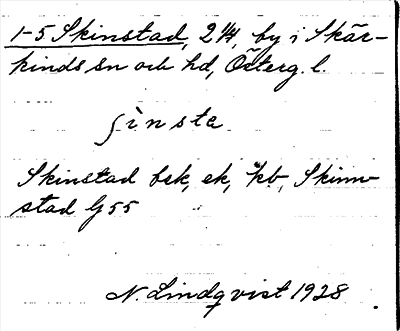 1-5 Skinstad, 2 1/4, by i Skär-
kinds sn och hd, Österg. l.
ʃìnsta
Skinstad bek, ek, kb, Skinn-
stad G 55
N. Lindqvist 1928